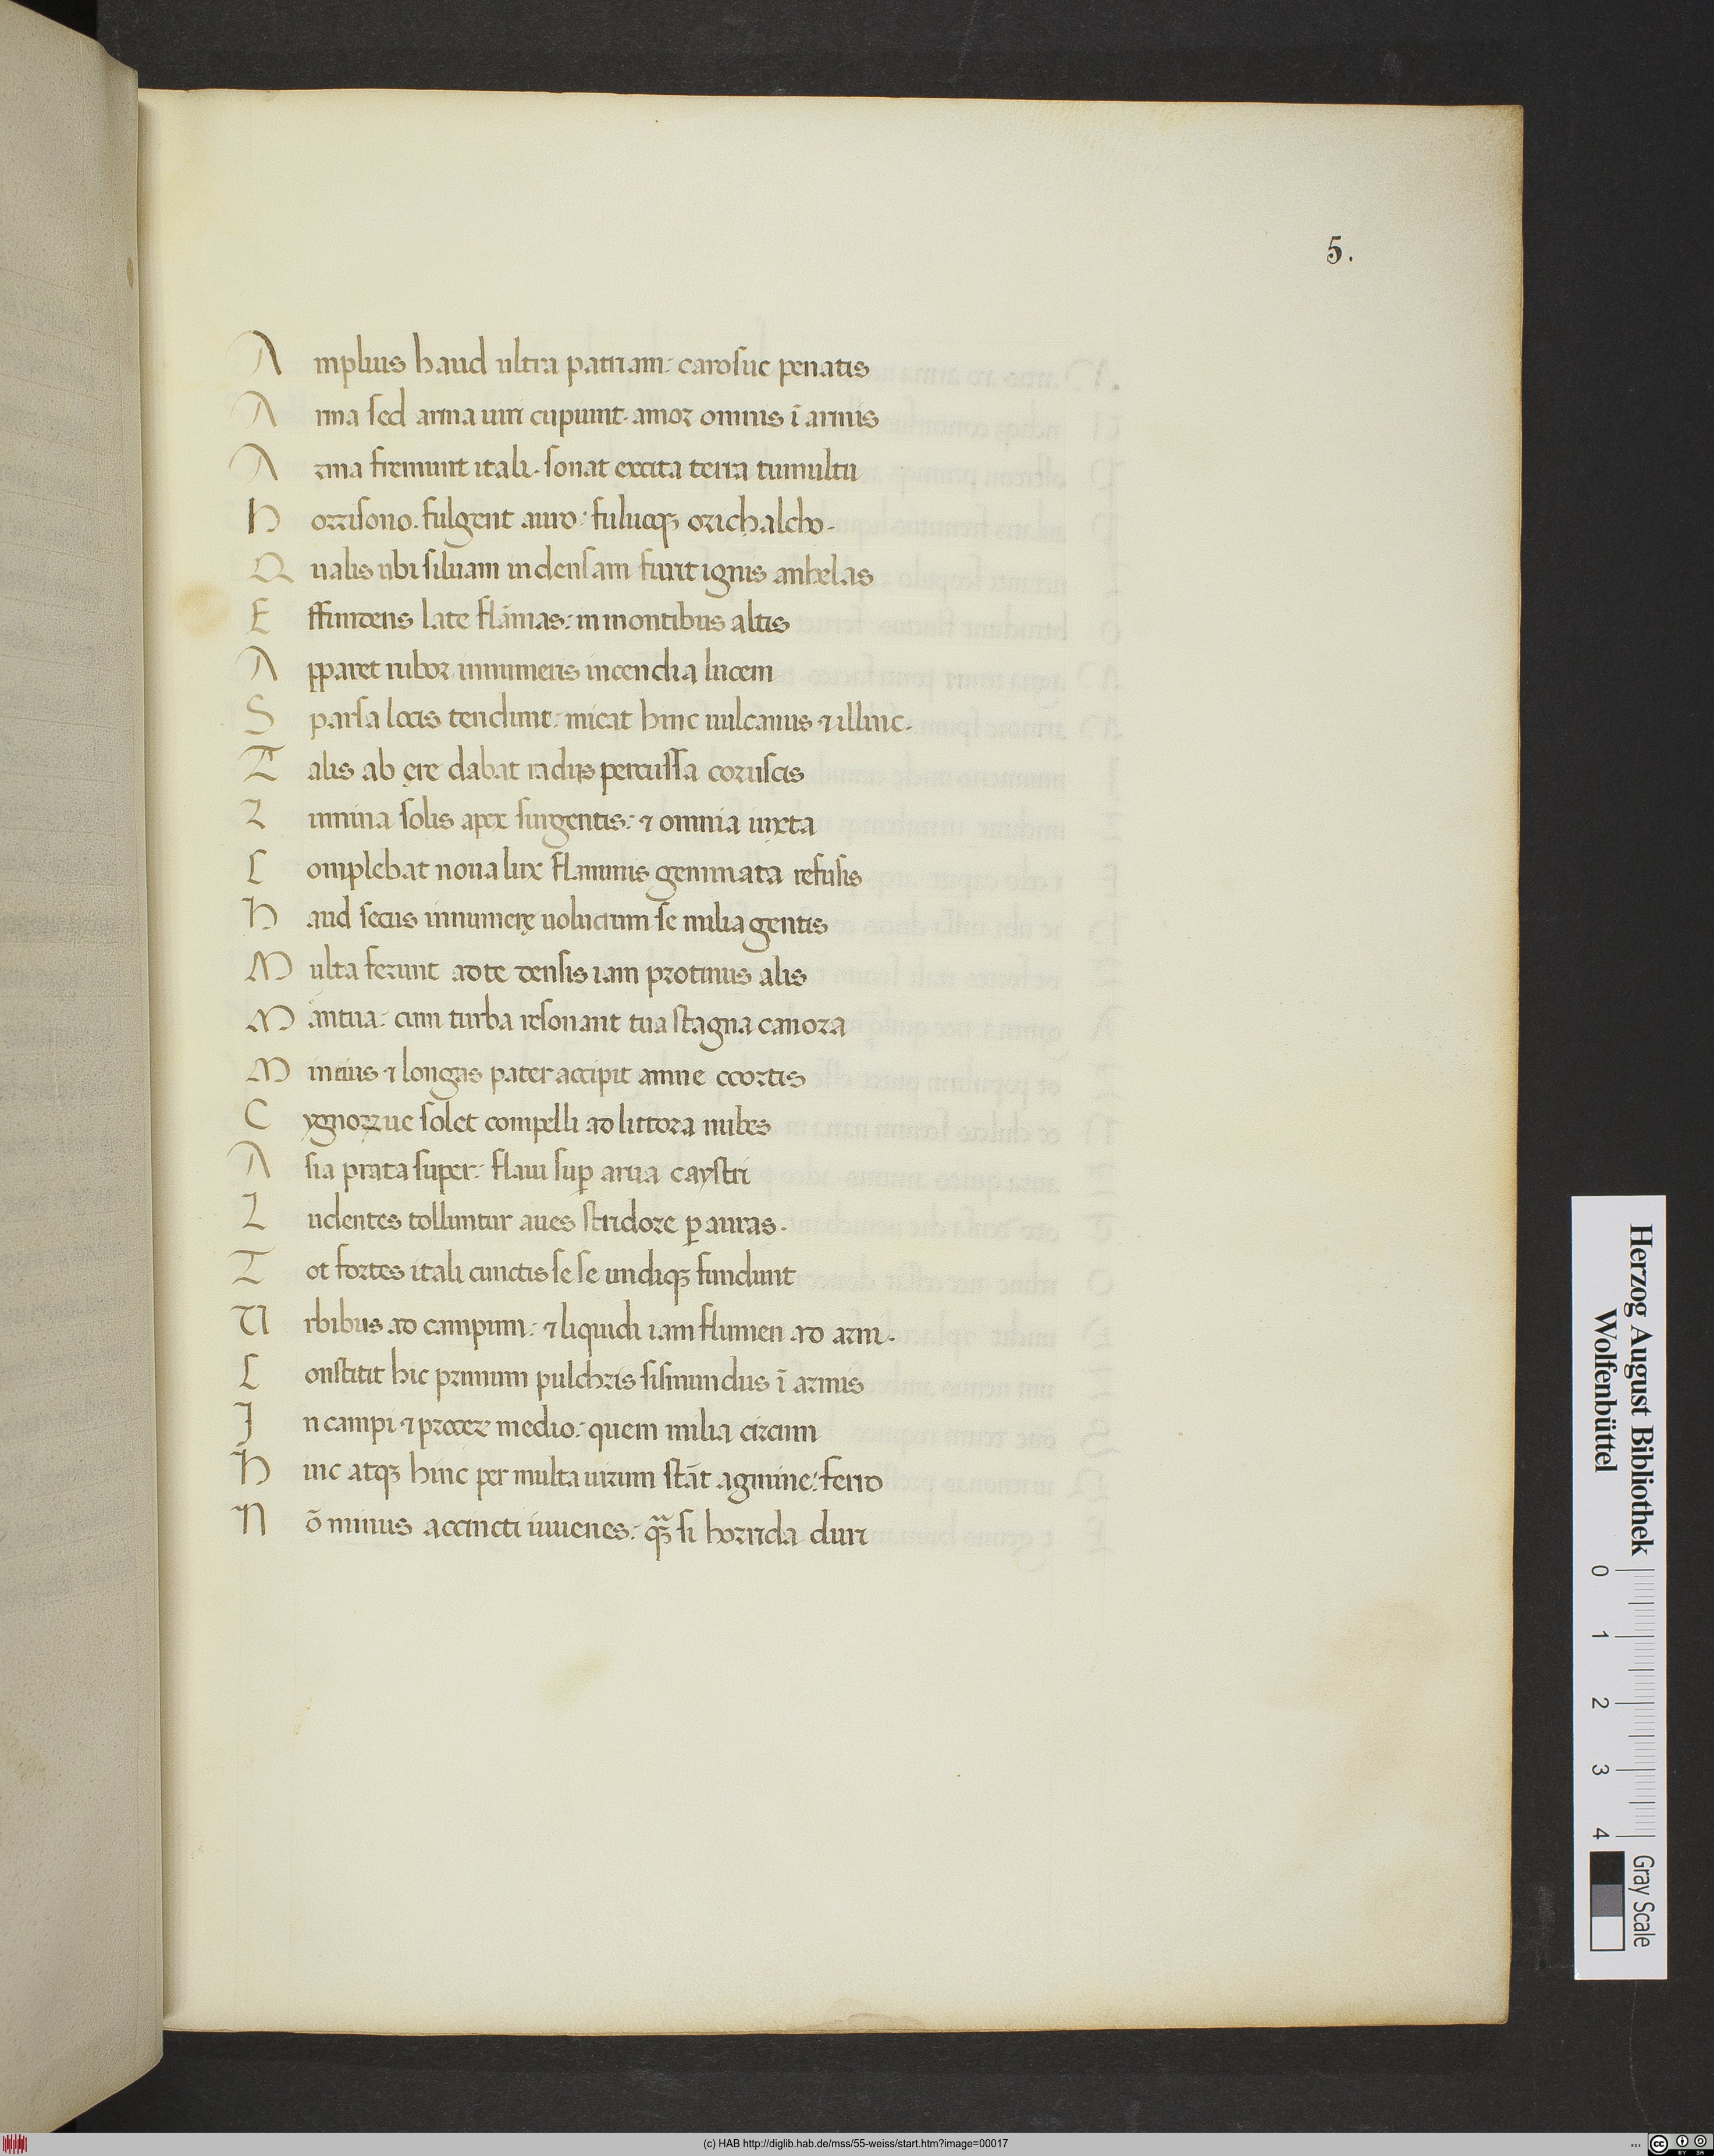 5.
Amplius haud ultra patriam: carosue penatis
Arma sed arma uiri cupiunt. amor omnis ī armis
Arma fremunt itali. sonat excita terra tumultu
Horrisono. fulgent auro: fuluoqȝ orichalcho.
Qualis ubi siluam indensam furit ignis anhelas
Effundens late flāmas: in montibus altis
Apparet rubor innumeris incendia lucem
Sparsa locis tendunt: micat hinc uulcanus ⁊ illinc.
Talis ab ęre dabat radijs percussa coruscis
Lumina solis apex surgentis: ⁊ omnia iuxta
Complebat noua lux flammis gemmata refusis
Haud secus innumerę uolucrum se milia gentis
Multa ferunt ad te densis iam protinus alis
Mantua: cum turba resonant tua stagna canora
Mincius ⁊ longas pater accipit amne coortis
Cygnoꝝue solet compelli ad littora nubes
Asia prata super: flaui suꝑ arua caystri
Ludentes tolluntur aues stridore ꝑ auras.
Tot fortes itali cunctis se se undiqȝ fundunt
Urbibus ad campum: ⁊ liquidi iam flumen ad arni.
Constitit hic primum pulchris sismundus ī armis
In campi ⁊ proceꝝ medio: quem milia circum
Hinc atqȝ hinc per multa uirum stāt agmine: ferro
Nō minus accincti iuuenes: qȝ̄ si horrida duri
Herzog August Bibliothek
Wolfenbüttel
0 1 2 3 4
Gray Scale
(c) HAB http://diglib.hab.de/mss/55-weiss/start.htm?image=00017